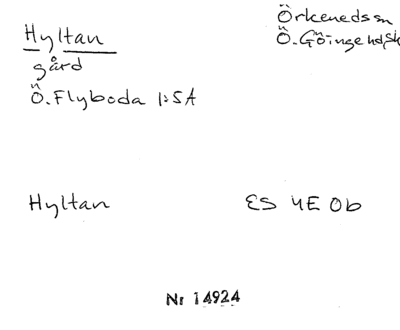 Hyltan
gård
Ö. Flyboda 1:5A
Örkeneds sn
Ö. Göinge hd, Sk
Hyltan
ES 4E 0b
Nr 14924